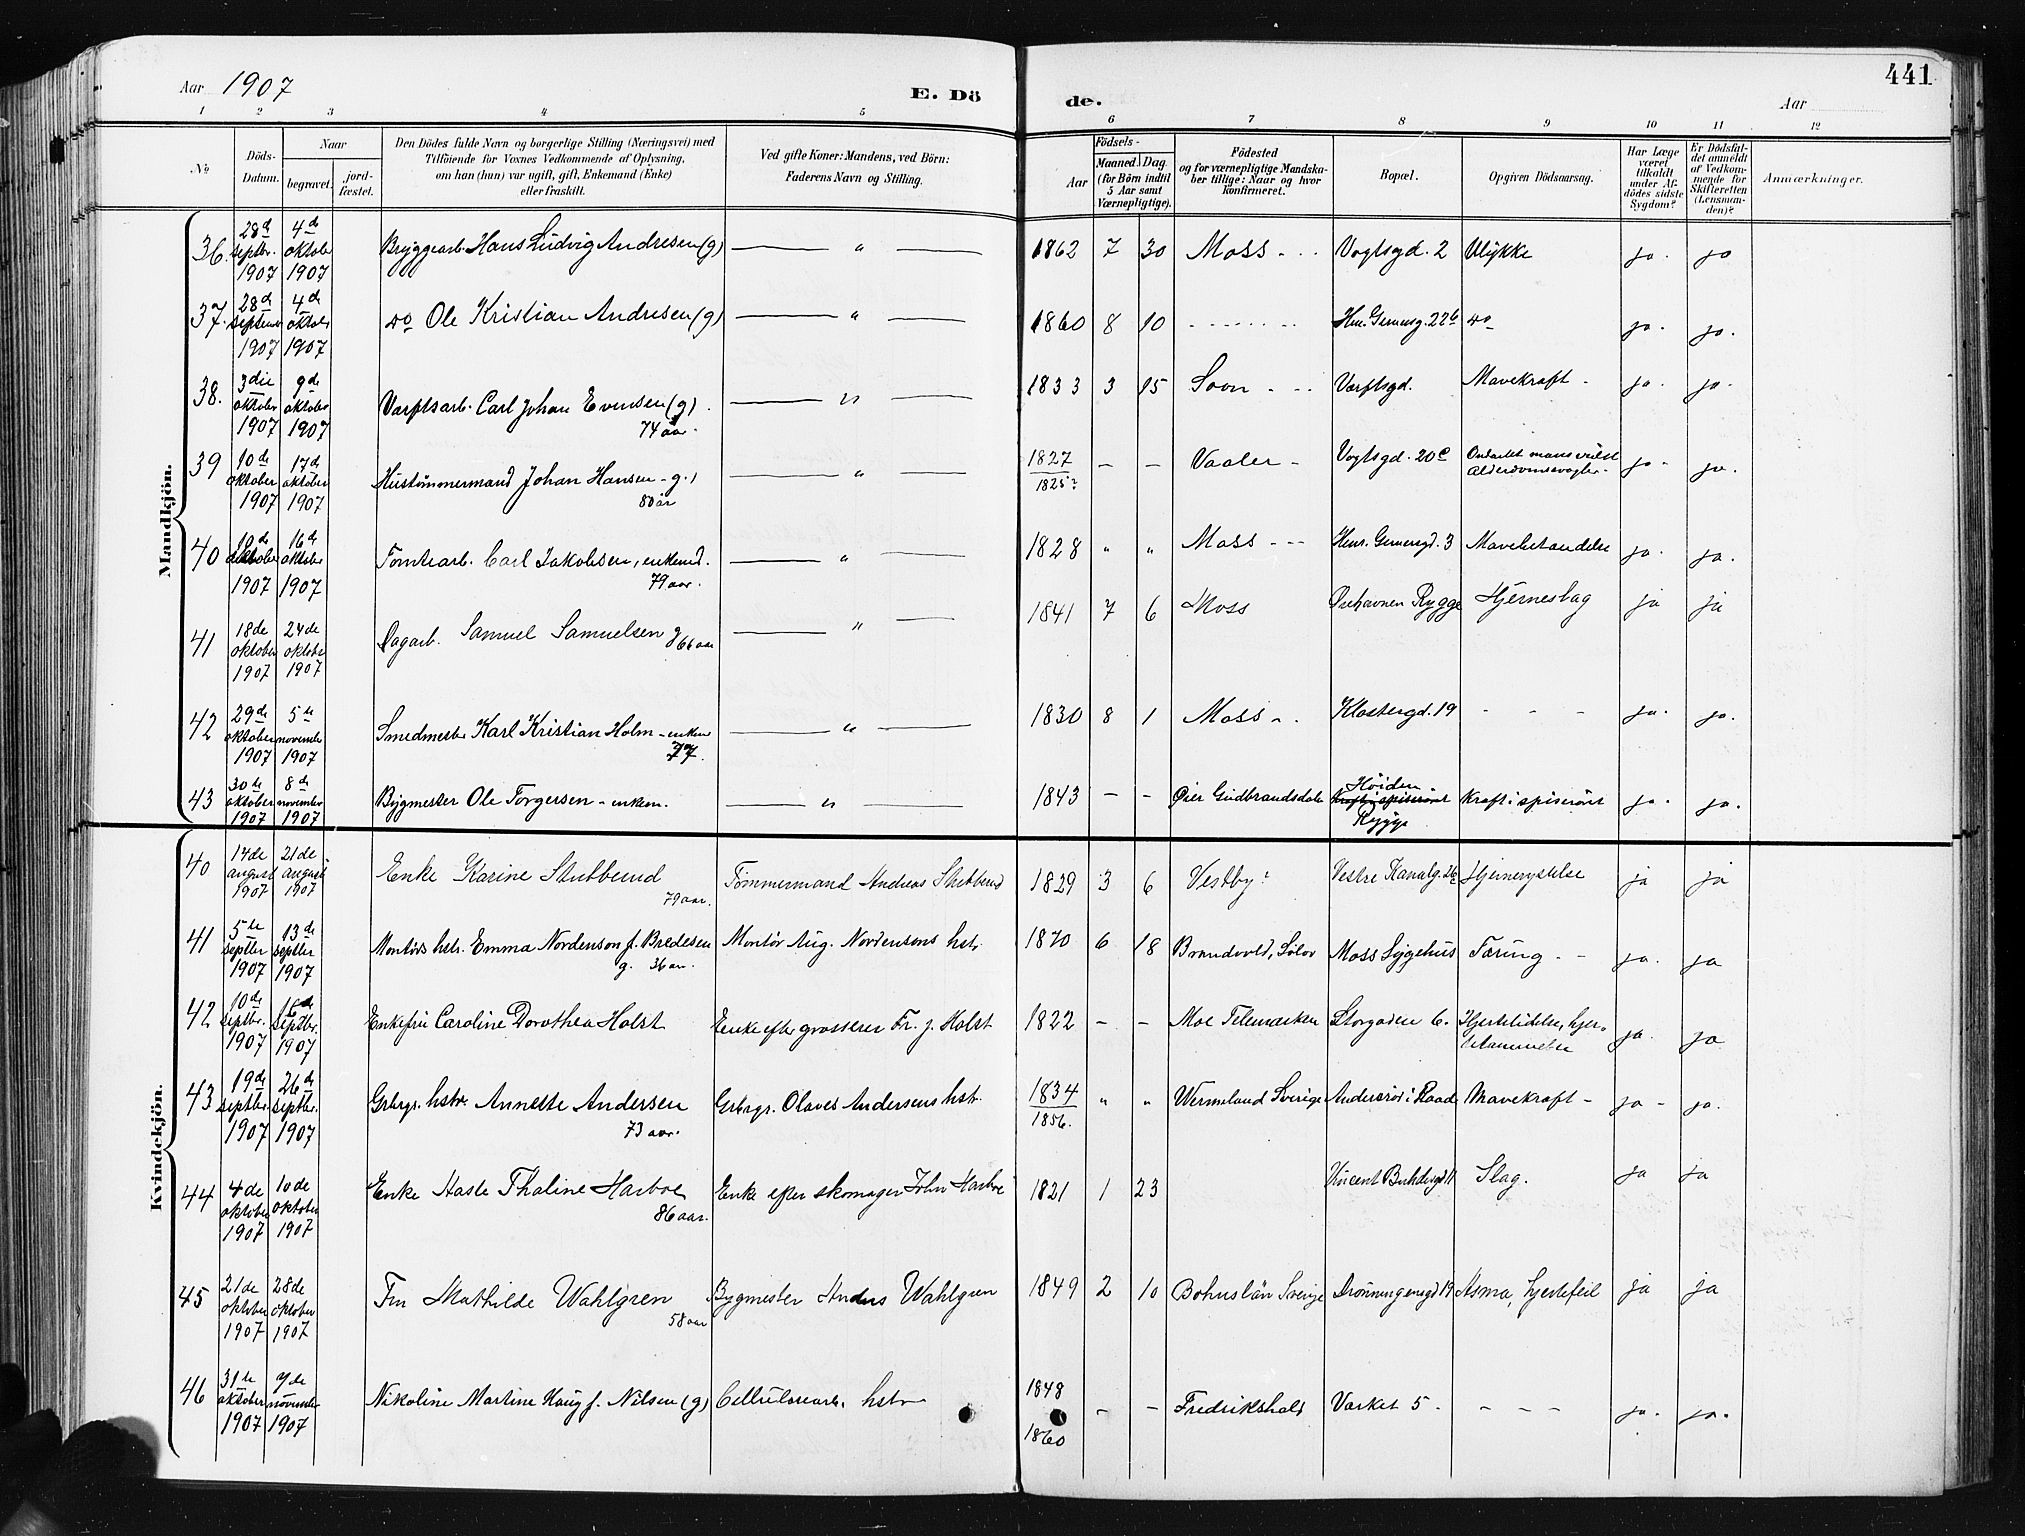 Aar 1907
E. Dö
de.
Aar
441
1 2 3 4 5 6 7 8 9 10 11 12
No.
Döds-Datum.
Naar
begravet.
jord-fæstet.
Den Dödes fulde Navn og borgerlige Stilling (Næringsvei) med
Tilföiende for Voxnes Vedkommende af Oplysning,
om han (hun) var ugift, gift, Enkemand (Enke)
eller fraskilt.
Ved gifte Koner: Mandens, ved Börn:
Faderens Navn og Stilling.
Födsels-
Aar
Maaned. Dag
(for Börn indtil
5 Aar samt
Værnepligtige).
Födested
og for værnepligtige Mandska-
ber tillige: Naar og hvor
konfirmeret.
Bopæl.
Opgiven Dödsaarsag.
Har Læge
været
tilkaldt
under Af-
dödes sidste
Sygdom?
Er Dödsfal-
det anmeldt
af Vedkom-
mende for
Skifteretten
(Lensman-
den)?
Anmærkninger.
Mandkjön.
36. 28d septbr. 1907 4de oktober 1907 Bryggearb. Hans Ludvig Andresen (g) — " — 1862 7 30 Moss Vogtsgd. 2 Ulykke ja. ja
37. 28d september 1907 4de oktober 1907 do Ole Kristian Andresen (g) — " — 1860 8 10 Hm. Gernersg. 22b do ja. ja.
38. 3die oktober 1907 9de oktober 1907 Værftsarb. Carl Johan Evensen (g). 74 aar. — " — 1833 3 15 Soon Værftsgd. Mavekræft ja. ja.
39 10de oktober 1907 17de oktober 1907 Hustømmermand Johan Hansen - g.) 80 år — " — 1827 1825? — — Vaaler Vogtsgd. 20c ja. ja.
40 10de oktober 1907 16de oktober 1907 Tomtearb. Carl Jakobsen, enkemd. 79 aar. — " — 1828 " " Moss Henr. Gernersgd. 3 Mavebetændelse ja. ja.
41 18de oktober 1907 24de oktober 1907 Dagarb. Samuel Samuelsen g 66 aar — " — 1841 7 6 Moss Ørehavnen Rygge Hjerneslag ja ja
42 29de oktober 1907 5te november 1907 Smedmester Karl Kristian Holm - enkem 77. — " — 1830 8 1 Moss Klostergd. 19 - - - ja. ja.
43 30te oktober 1907 8de november 1907 Bygmester Ole Torgersen - enkem. — " — 1843 — — Øier Gudbrandsdalen Kraft i spiserøret Höiden Rygge Kræft i spiserøret ja. ja.
Kvindekjön.
40 14de august 1907 21de august 1907 Enke Karine Stubberud 79 aar. Tømmermand Andreas Stubberud 1829 3 6 Vestby? Vestre Kanalg. 26 Hjernerystelse ja ja
41 5te septbr 1907 13de septbr 1907 Montørs hstr. Emma Nordenson f. Bredesen g. 36 aar. Montør Aug. Nordensons hstr. 1870 6 18 Brandvold, Soløv Moss Sygehus Tæring - - ja. ja
42 10de septbr. 1907 16de septbr. 1907 Enkefru Caroline Dorothea Holst Enke efter grosserer Fr. J. Holst 1822 — — Moe Telemarken Storgaden 6. Hjertelidelse, hjertelammelse ja. ja
43 19de septbr. 1907 26de septbr. 1907 Grbrgr. hstr. Annette Andersen 73 aar. Grbrgr. Olaves Andersens hstr. 1834 1856. " " Wermeland Sverige Andersrød i Raade Mavekræft - ja - ja.
44 4de oktober 1907 10de oktober 1907 Enke Aaste Thaline Harboe 86 aar. Enke efter skomager John Harboe 1821 1 23 Vincent Buddesgd 11 Slag. ja ja
45 21de oktober 1907 28de oktober 1907 Fru Mathilde Wahlgren 58 aar Bygmester Anders Wahlgren 1849 2 10 Bohuslän Sverige Dronningensgd 19 Asma, hjertefeil ja ja
46 31te oktober 1907 7de november 1907 Nikoline Martine Haug f. Nilsen (g) Cellulosearb. hstr 1848 1860 — — Fredrikshald Værket 5. - - - ja. ja.